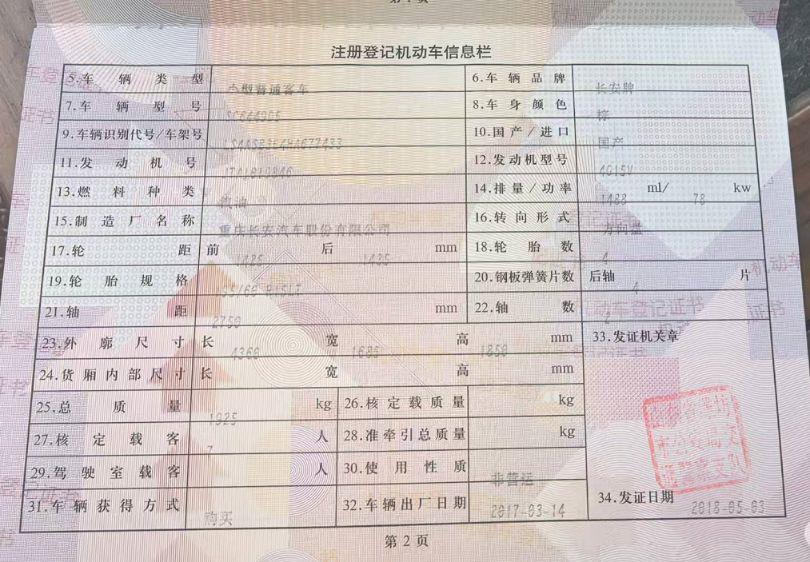 注册登记机动车信息栏
5.车辆类型 小型普通客车 6.车辆品牌 长安牌
7.车辆型号 8.车身颜色 棕
9.车辆识别代号/车架号 10.国产/进口 国产
11.发动机号 12.发动机型号 4G15V
13.燃料种类 汽油 14.排量/功率 1488 ml/ 78 kw
15.制造厂名称 重庆长安汽车股份有限公司 16.转向形式 方向盘
17.轮距 前 1425 后 1435 mm 18.轮胎数 4
19.轮胎规格 20.钢板弹簧片数 后轴 片
21.轴距 2750 mm 22.轴数 2
23.外廓尺寸 长 4360 宽 1685 高 1850 mm 33.发证机关章
24.货厢内部尺寸 长 宽 高 mm
25.总质量 1925 kg 26.核定载质量 kg
27.核定载客 7 人 28.准牵引总质量 kg
29.驾驶室载客 人 30.使用性质 非营运
31.车辆获得方式 购买 32.车辆出厂日期 2017-03-14 34.发证日期 2018-05-03
第2页